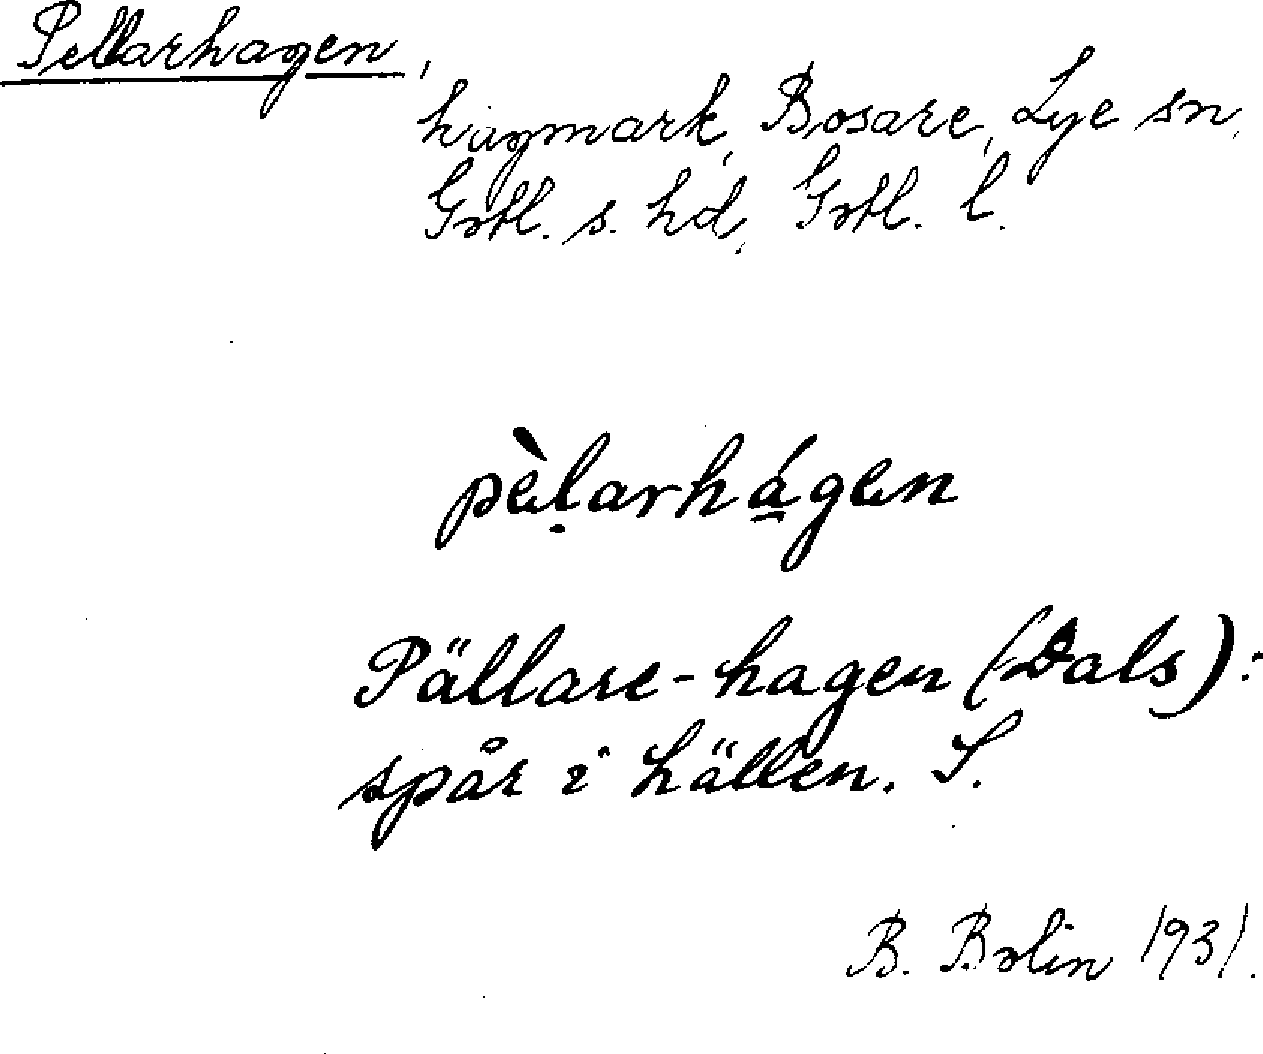 Pellarhagen,
hagmark, Bosare, Lye sn,
Gotl. s. hd, Gotl. l.
pèḷarhá̲gen
Pällare-hagen (Dals):
spår i hällen. S.
B. Bolin 1931.